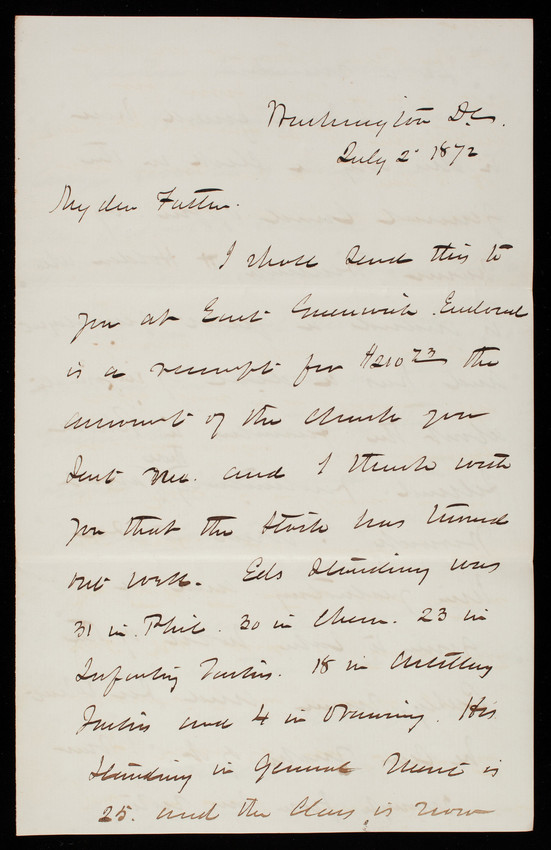 Washington DC.
July 2 1872
My dear Father.
I shall send this to
you at East Greenwich Enclosed
is a receipt for $210 23 the
amount of the check you
sent me. and I think with
you that the stock has turned
out well. Eds standing was
31 in Phil. 30 in Chem. 23 in
Infantry Tactics. 18 in Artillery
Tactics and 4 in Drawing. His
standing in General Merit is
25. and the Class is now